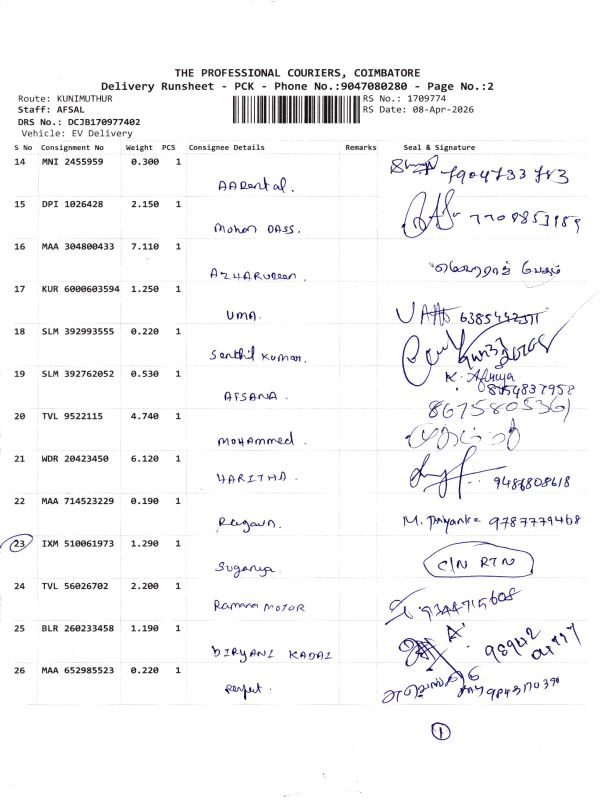 THE PROFESSIONAL COURIERS, COIMBATORE
Delivery Runsheet - PCK - Phone No.:9047080280 - Page No.:2
Route: KUNIMUTHUR
RS No.: 1709774
Staff: AFSAL
RS Date: 08-Apr-2026
DRS No.: DCJB170977402
Vehicle: EV Delivery
S No Consignment No Weight PCS Consignee Details Remarks Seal & Signature
14 MNI 2455959 0.300 1
AARental.
15 DPI 1026428 2.150 1
Mohan DASS.
16 MAA 304800433 7.110 1
AZHARUDEEN.
17 KUR 6000603594 1.250 1
UMA.
18 SLM 392993555 0.220 1
Senthil Kumar.
19 SLM 392762052 0.530 1
AFSANA.
8754837958
20 TVL 9522115 4.740 1
8675805361
Mohammed.
21 WDR 20423450 6.120 1
HARITHA. 9486808618
22 MAA 714523229 0.190 1
M. Priyanka 9787779468
23 IXM 510061973 1.290 1
C/N RTN
Suganya.
24 TVL 56026702 2.200 1
Ramana MOTOR 9344715608
25 BLR 260233458 1.190 1
BIRYANI KADAI
26 MAA 652985523 0.220 1
Perfect.
1